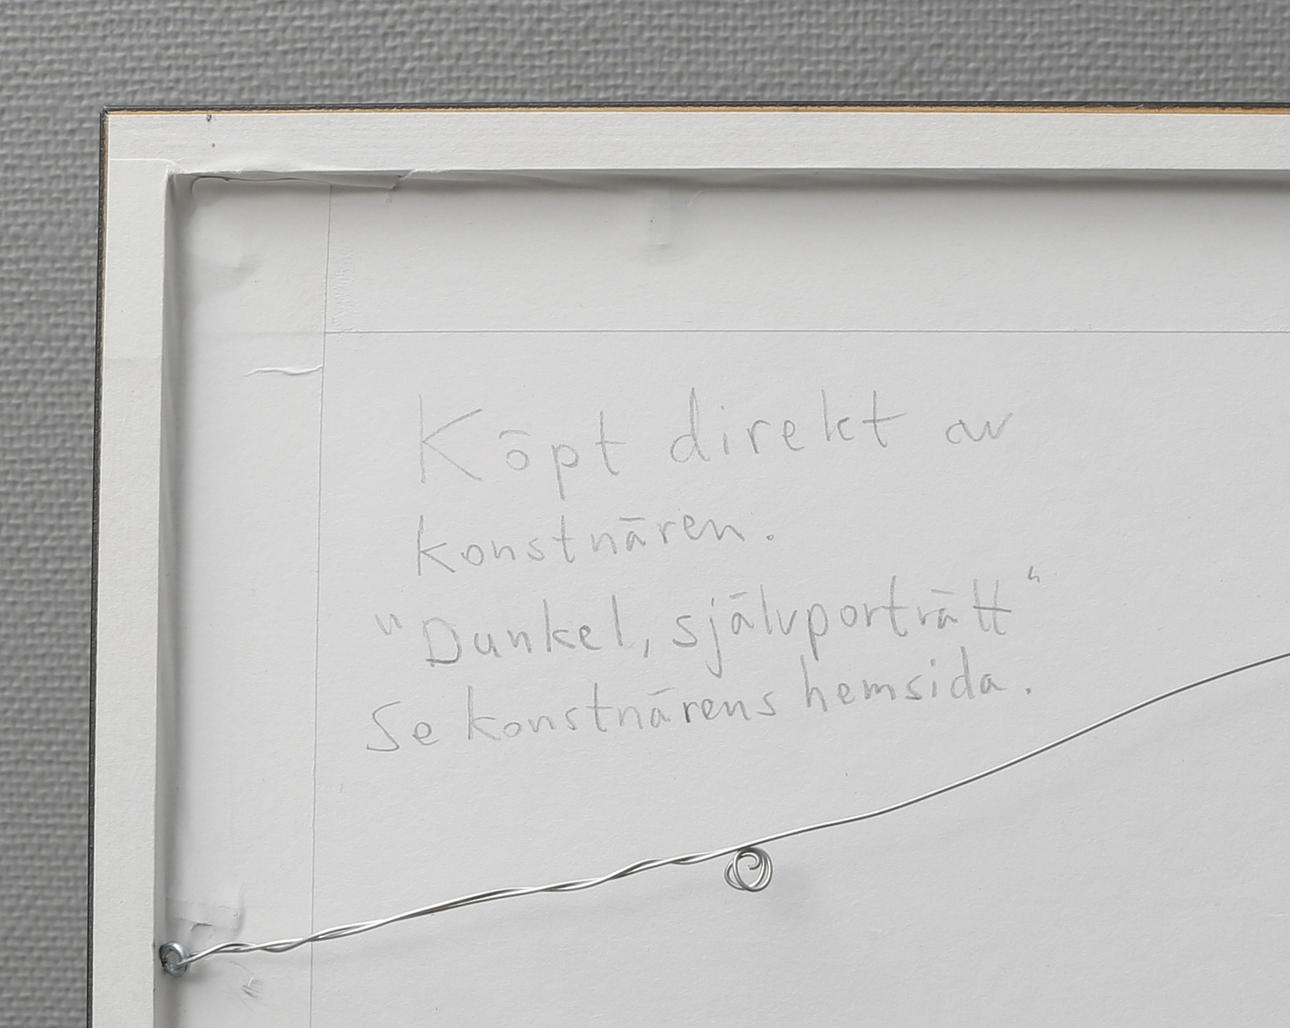 Köpt direkt av
konstnären.
"Dunkel, självporträtt"
Se konstnärens hemsida.